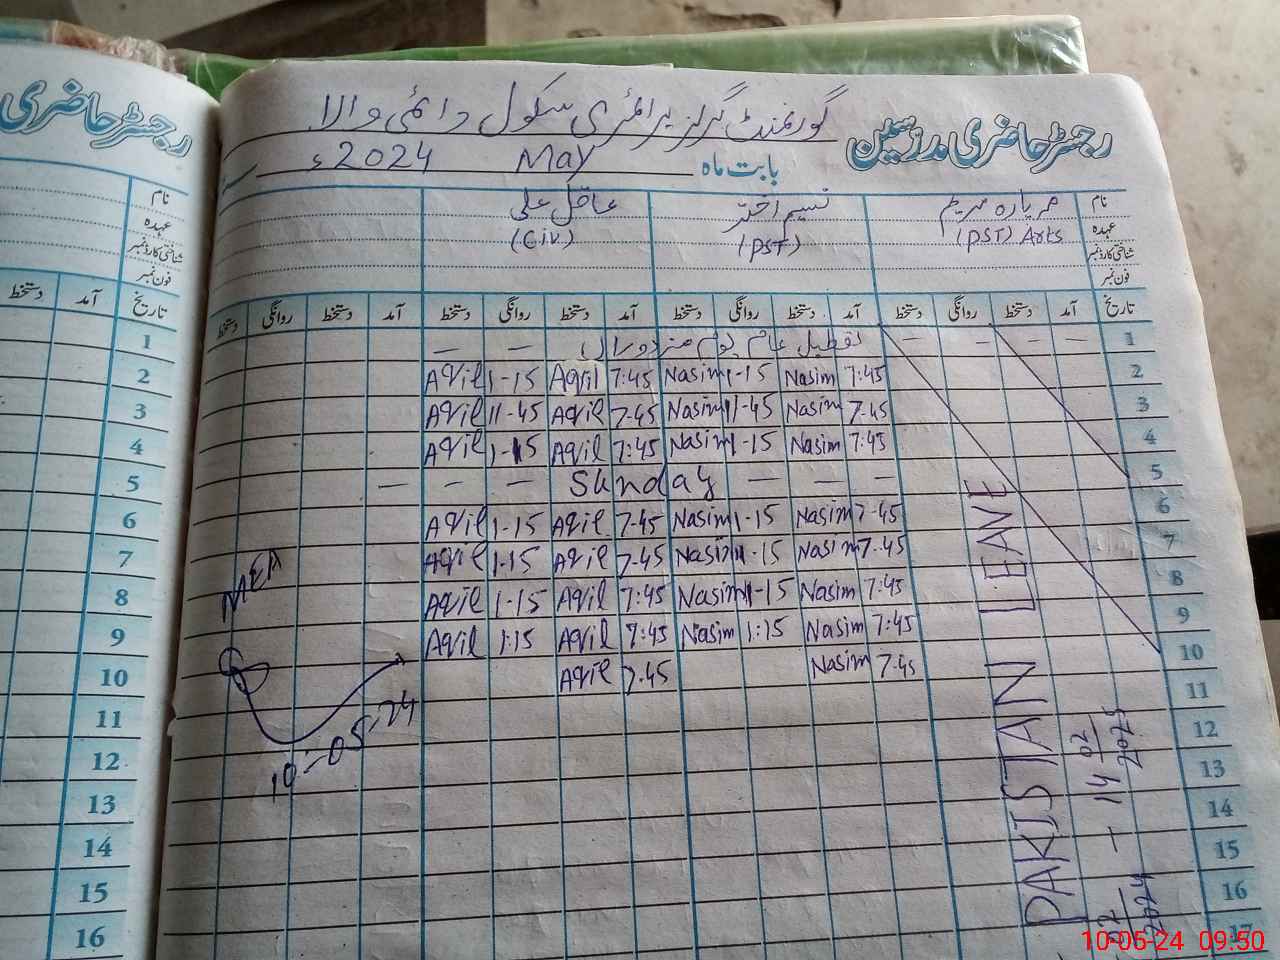 رجسٹر حاضری
رجسٹر حاضری مدرسین گورنمنٹ گرلز پرائمری سکول دائمی والا
بابت ماہ May 2024ء
نام نسیم اختر عاقل علی
عہدہ (PST) Arts (PST) (Civ)
شناختی کارڈ نمبر
فون نمبر
تاریخ آمد دستخط روانگی دستخط آمد دستخط روانگی دستخط آمد دستخط روانگی دستخط آمد دستخط روانگی دستخط
1 — — — — تعطیل عام یوم مزدوراں — —
2 7:45 Nasim 1-15 Nasim 7:45 Aqil 1-15 Aqil
3 7-45 Nasim 11-45 Nasim 7-45 Aqil 11-45 Aqil
4 7:45 Nasim 1-15 Nasim 7:45 Aqil 1-15 Aqil
5 — — — Sunday — — —
6 7-45 Nasim 1-15 Nasim 7-45 Aqil 1-15 Aqil
7 7-45 Nasim 1-15 Nasim 7-45 Aqil 1-15 Aqil
8 7:45 Nasim 1-15 Nasim 7:45 Aqil 1-15 Aqil
9 7:45 Nasim 1:15 Nasim 7:45 Aqil 1:15 Aqil
10 7-45 Nasim 7-45 Aqil
11
12
13
14
15
16
17
PAKISTAN LEAVE
02 2024 — 14 02 2025
MEA
10-05-24
نام
عہدہ
شناختی کارڈ نمبر
فون نمبر
تاریخ آمد دستخط
1
2
3
4
5
6
7
8
9
10
11
12
13
14
15
16
10-05-24 09:50